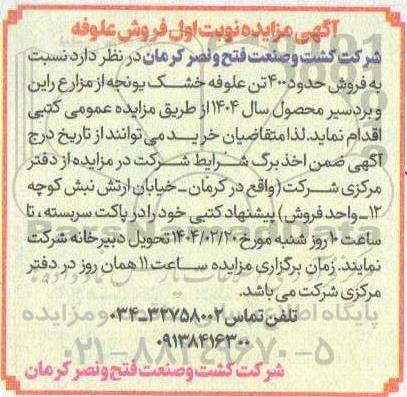 آگهی مزایده نوبت اول فروش علوفه
شرکت کشت و صنعت فتح و نصر کرمان در نظر دارد نسبت
به فروش حدود ۴۰۰ تن علوفه خشک یونجه از مزارع راین
و بردسیر محصول سال ۱۴۰۴ از طریق مزایده عمومی کتبی
اقدام نماید. لذا متقاضیان خرید می توانند از تاریخ درج
آگهی ضمن اخذ برگ شرایط شرکت در مزایده از دفتر
مرکزی شرکت (واقع در کرمان ـ خیابان ارتش نبش کوچه
۱۲ ـ واحد فروش) پیشنهاد کتبی خود را در پاکت سربسته، تا
ساعت ۱۰ روز شنبه مورخ ۱۴۰۴/۰۲/۲۰ تحویل دبیرخانه شرکت
نمایند. زمان برگزاری مزایده ساعت ۱۱ همان روز در دفتر
مرکزی شرکت می باشد.
تلفن تماس ۳۲۷۵۸۰۰۲-۰۳۴
۰۹۱۳۸۴۱۶۳۰۰
شرکت کشت و صنعت فتح و نصر کرمان
پایگاه اطلاع رسانی مناقصه و مزایده
۰۲۱-۸۸۳۴۹۶۷۰-۵